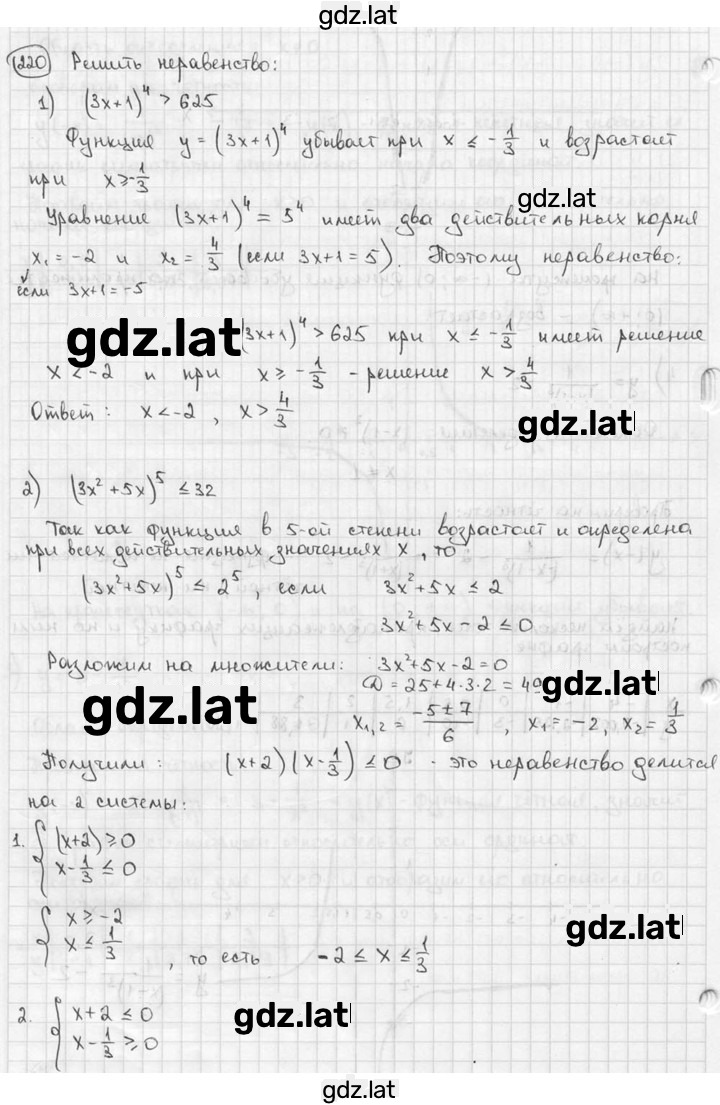 gdz.lat
220 Решить неравенство:
1) (3x+1)⁴ > 625
Функция y = (3x+1)⁴ убывает при x ≤ -1/3 и возрастает
при x ≥ -1/3
gdz.lat
Уравнение (3x+1)⁴ = 5⁴ имеет два действительных корня
x₁ = -2 и x₂ = 4/3 (если 3x+1 = 5). Поэтому неравенство:
если 3x+1 = -5
gdz.lat (3x+1)⁴ > 625 при x ≤ -1/3 имеет решение
x < -2 и при x ≥ -1/3 - решение x > 4/3
Ответ: x < -2, x > 4/3
gdz.lat
2) (3x²+5x)⁵ ≤ 32
Так как функция в 5-ой степени возрастает и определена
при всех действительных значениях x, то
(3x²+5x)⁵ ≤ 2⁵, если 3x²+5x ≤ 2
3x²+5x-2 ≤ 0
Разложим на множители: 3x²+5x-2 = 0
D = 25+4·3·2 = 49
gdz.lat
gdz.lat
x₁,₂ = (-5±7)/6, x₁ = -2, x₂ = 1/3
Получили: (x+2)(x-1/3) ≤ 0 - это неравенство делится
на 2 системы:
1. { (x+2) ≥ 0
x-1/3 ≤ 0
{ x ≥ -2
x ≤ 1/3, то есть -2 ≤ x ≤ 1/3
gdz.lat
2. { x+2 ≤ 0
x-1/3 ≥ 0
gdz.lat
gdz.lat